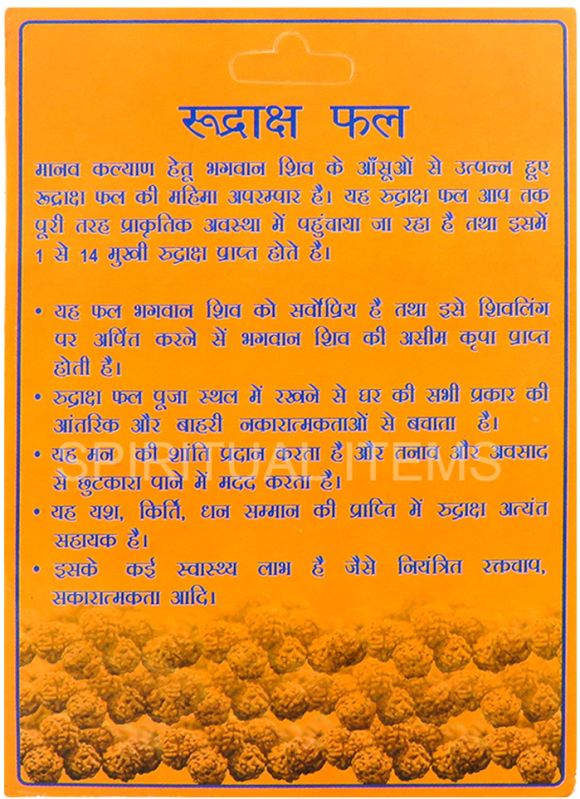 रूद्राक्ष फल
मानव कल्याण हेतू भगवान शिव के आँसूओं से उत्पन्न हूए
रूद्राक्ष फल की महिमा अपरम्पार है। यह रुद्राक्ष फल आप तक
पूरी तरह प्राकृतिक अवस्था में पहुंचाया जा रहा है तथा इसमें
1 से 14 मुखी रुद्राक्ष प्राप्त होते है।
• यह फल भगवान शिव को सर्वोप्रिय है तथा इसे शिवलिंग
पर अर्पित करने सें भगवान शिव की असीम कृपा प्राप्त
होती है।
• रुद्राक्ष फल पूजा स्थल में रखने से घर की सभी प्रकार की
आंतरिक और बाहरी नकारात्मकताओं से बचाता है।
• यह मन की शांति प्रदान करता है और तनाव और अवसाद
SPIRITUAL ITEMS
से छुटकारा पाने में मदद करता है।
• यह यश, किर्ति, धन सम्मान की प्राप्ति में रुद्राक्ष अत्यंत
सहायक है।
• इसके कई स्वास्थ्य लाभ है जैसे नियंत्रित रक्तचाप,
सकारात्मकता आदि।